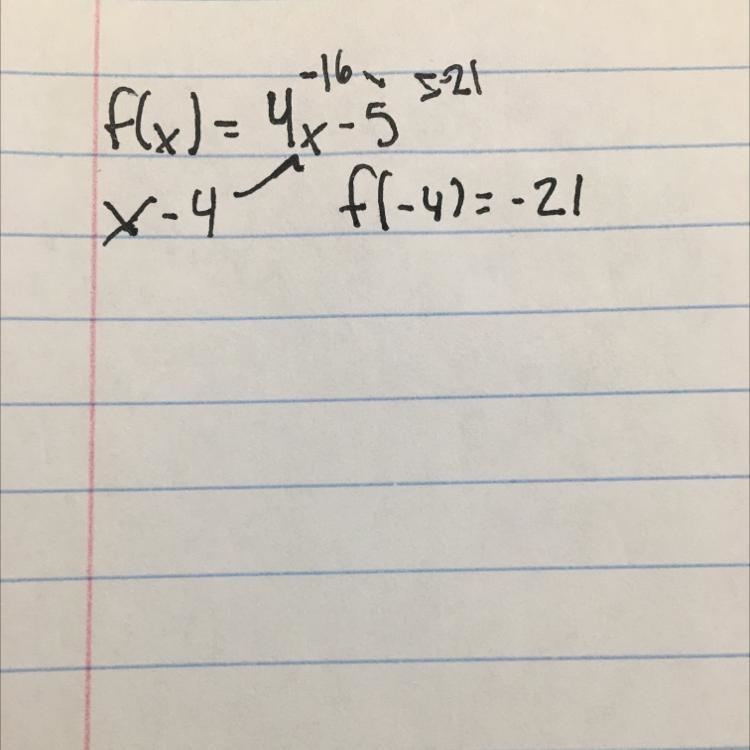 -16 5-21
f(x) = 4x - 5
x - 4 f(-4) = -21